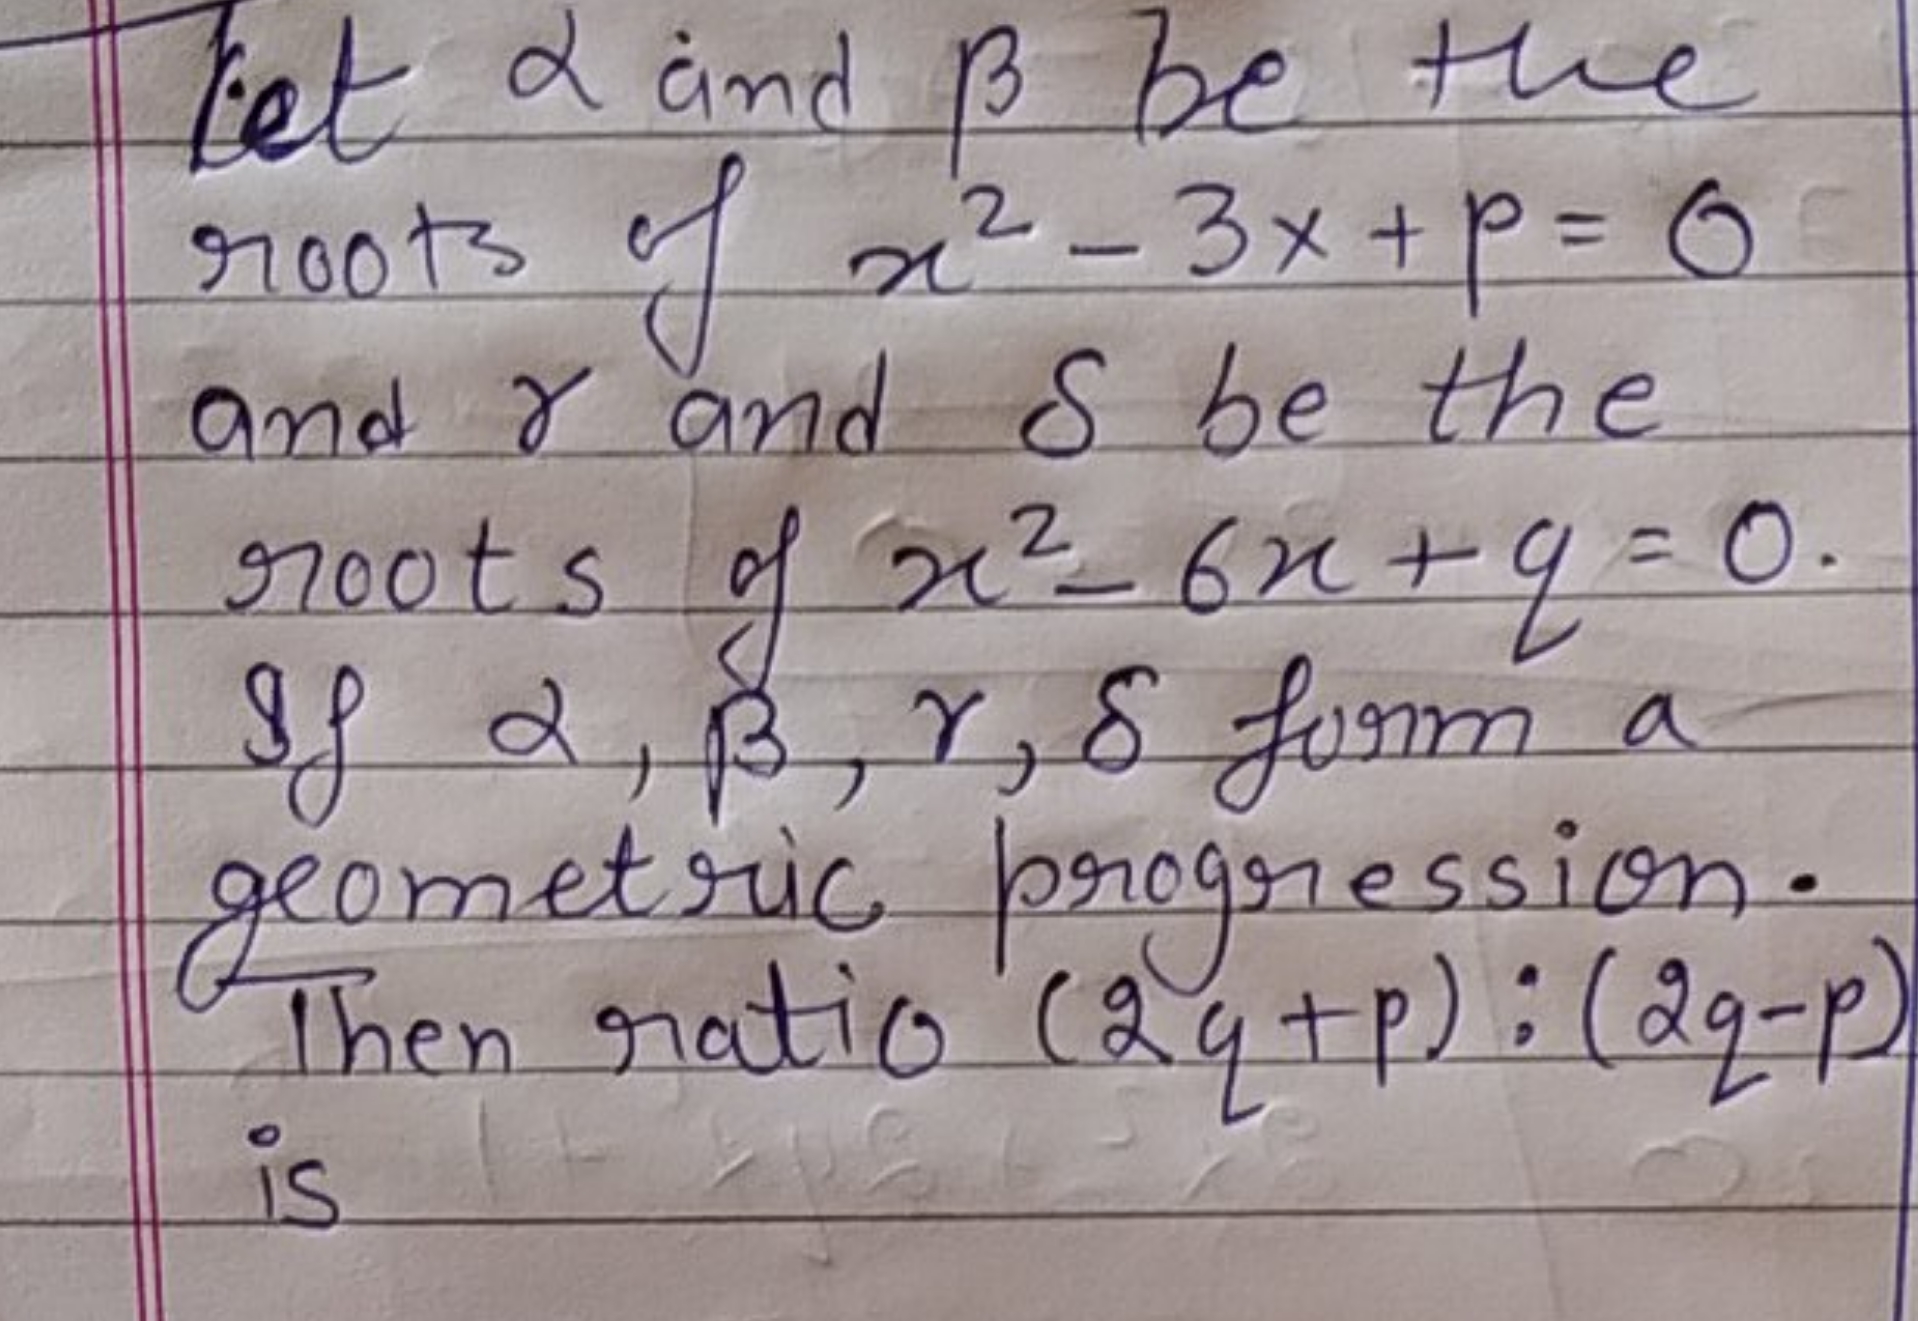 Let α and β be the
roots of x² - 3x + p = 0
and γ and δ be the
roots of x² - 6x + q = 0.
If α, β, γ, δ form a
geometric progression.
Then ratio (2q+p) : (2q-p)
is